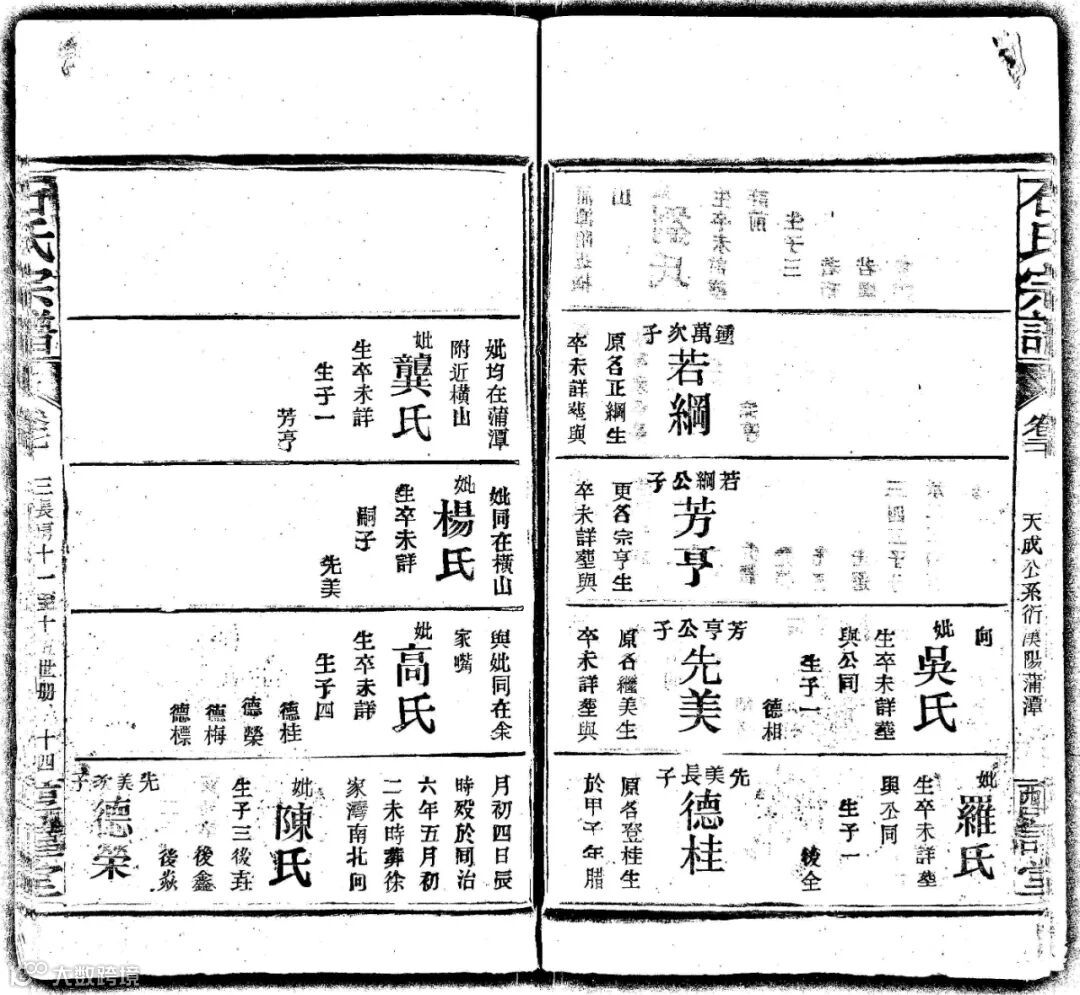 石氏宗譜
卷二
天成公系衍漢陽蒲潭
西記堂
妣羅氏
生卒未詳塟
與公同
生子一
後全
向
妣吳氏
生卒未詳塟
與公同
生子一
德相
鍾萬次子
若綱
原名正綱生
卒未詳塟與
若綱公子
芳亨
更名宗亨生
卒未詳塟與
芳亨公子
先美
原名繼美生
卒未詳塟與
先美長子
德桂
原名登桂生
於甲子年腊
妣均在蒲潭
附近橫山
妣龔氏
生卒未詳
生子一
芳亭
妣同在橫山
妣楊氏
生卒未詳
嗣子
先美
與妣同在余
家嘴
妣高氏
生卒未詳
生子四
德桂
德榮
德梅
德標
月初四日辰
時歿於同治
六年五月初
二未時葬徐
家灣南北向
妣陳氏
生子三後垚
後鑫
後焱
先美次子
德荣
石氏宗譜
三長房十一至十五世册
十四
大数跨境